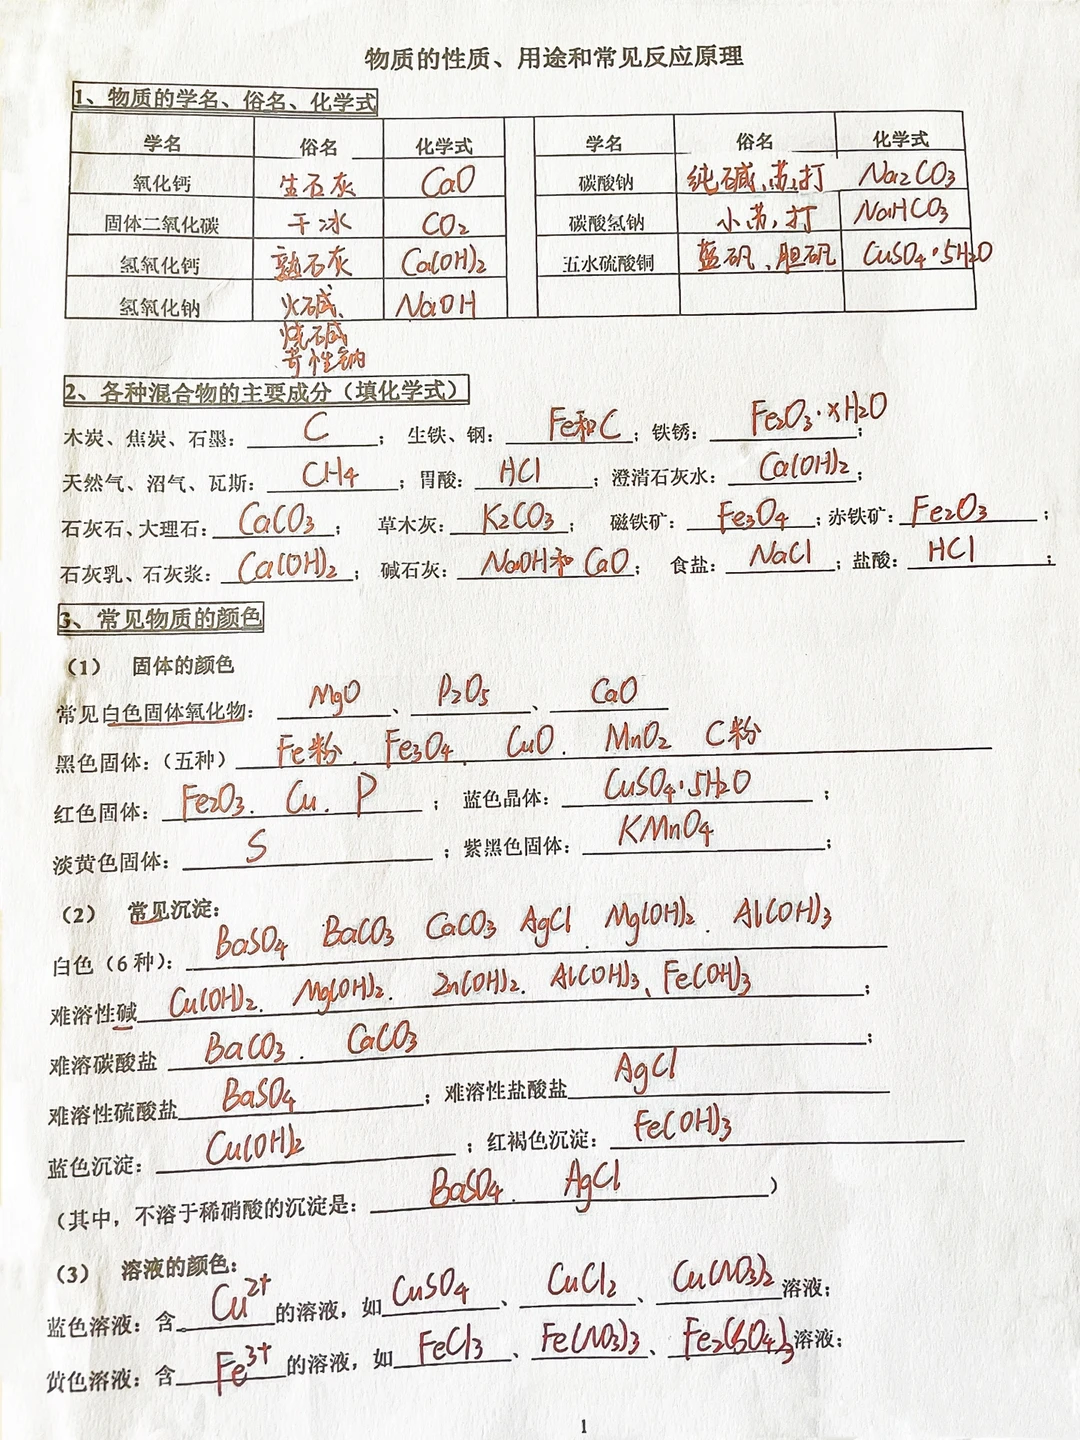 物质的性质、用途和常见反应原理
1、物质的学名、俗名、化学式
学名 俗名 化学式 学名 俗名 化学式
氧化钙 生石灰 CaO 碳酸钠 纯碱、苏打 Na2CO3
固体二氧化碳 干冰 CO2 碳酸氢钠 小苏打 NaHCO3
氢氧化钙 熟石灰 Ca(OH)2 五水硫酸铜 蓝矾、胆矾 CuSO4·5H2O
氢氧化钠 火碱、 NaOH
烧碱
苛性钠
2、各种混合物的主要成分（填化学式）
木炭、焦炭、石墨：C； 生铁、钢：Fe和C；铁锈：Fe2O3·xH2O；
天然气、沼气、瓦斯：CH4；胃酸：HCl；澄清石灰水：Ca(OH)2；
石灰石、大理石：CaCO3； 草木灰：K2CO3； 磁铁矿：Fe3O4；赤铁矿：Fe2O3；
石灰乳、石灰浆：Ca(OH)2； 碱石灰：NaOH和CaO； 食盐：NaCl；盐酸：HCl；
3、常见物质的颜色
（1） 固体的颜色
常见白色固体氧化物：MgO、P2O5、CaO
黑色固体：（五种）Fe粉、Fe3O4、CuO、MnO2 C粉
红色固体：Fe2O3、Cu、P； 蓝色晶体：CuSO4·5H2O；
淡黄色固体：S；紫黑色固体：KMnO4；
（2） 常见沉淀：
白色（6种）：BaSO4 BaCO3 CaCO3 AgCl、Mg(OH)2、Al(OH)3
难溶性碱Cu(OH)2、Mg(OH)2、Zn(OH)2、Al(OH)3、Fe(OH)3；
难溶碳酸盐 BaCO3、CaCO3；
难溶性硫酸盐BaSO4；难溶性盐酸盐AgCl
蓝色沉淀：Cu(OH)2；红褐色沉淀：Fe(OH)3
（其中，不溶于稀硝酸的沉淀是：BaSO4、AgCl）
（3） 溶液的颜色：
蓝色溶液：含Cu2+的溶液，如CuSO4、CuCl2、Cu(NO3)2溶液；
黄色溶液：含Fe3+的溶液，如FeCl3、Fe(NO3)3、Fe2(SO4)3溶液；
1